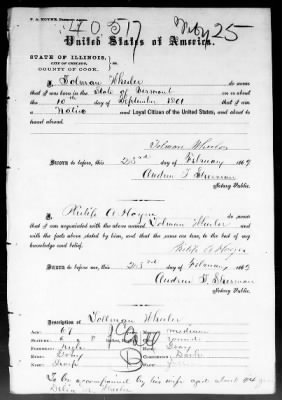 P. A. HOYNE,
40517
Feby 25
United States of America.
STATE OF ILLINOIS,
CITY OF CHICAGO, ss.
COUNTY OF COOK.
I, Tolman Wheeler do swear
that I was born in the State of Vermont on the
10th day of September 1801 that I am
a Native and Loyal Citizen of the United States, and about to
travel abroad.
Tolman Wheeler
SWORN to before, this 23rd day of February 1869
Andrew T Sherman
Notary Public.
I, Philip A Hoyne do swear
that I am acquainted with the above named Tolman Wheeler and
with the facts above stated by him, and that the same are true, to the best of my
knowledge and belief.
Philip A Hoyne
SWORN to before me, this 23rd day of February 1869
Andrew T. Sherman
Notary Public.
Description of Tollman Wheeler
AGE: 67 medium
STATURE: 5 8 round
High Gray
Dark
Full
To be accompanied by his wife aged about 44 years
Delia Wheeler